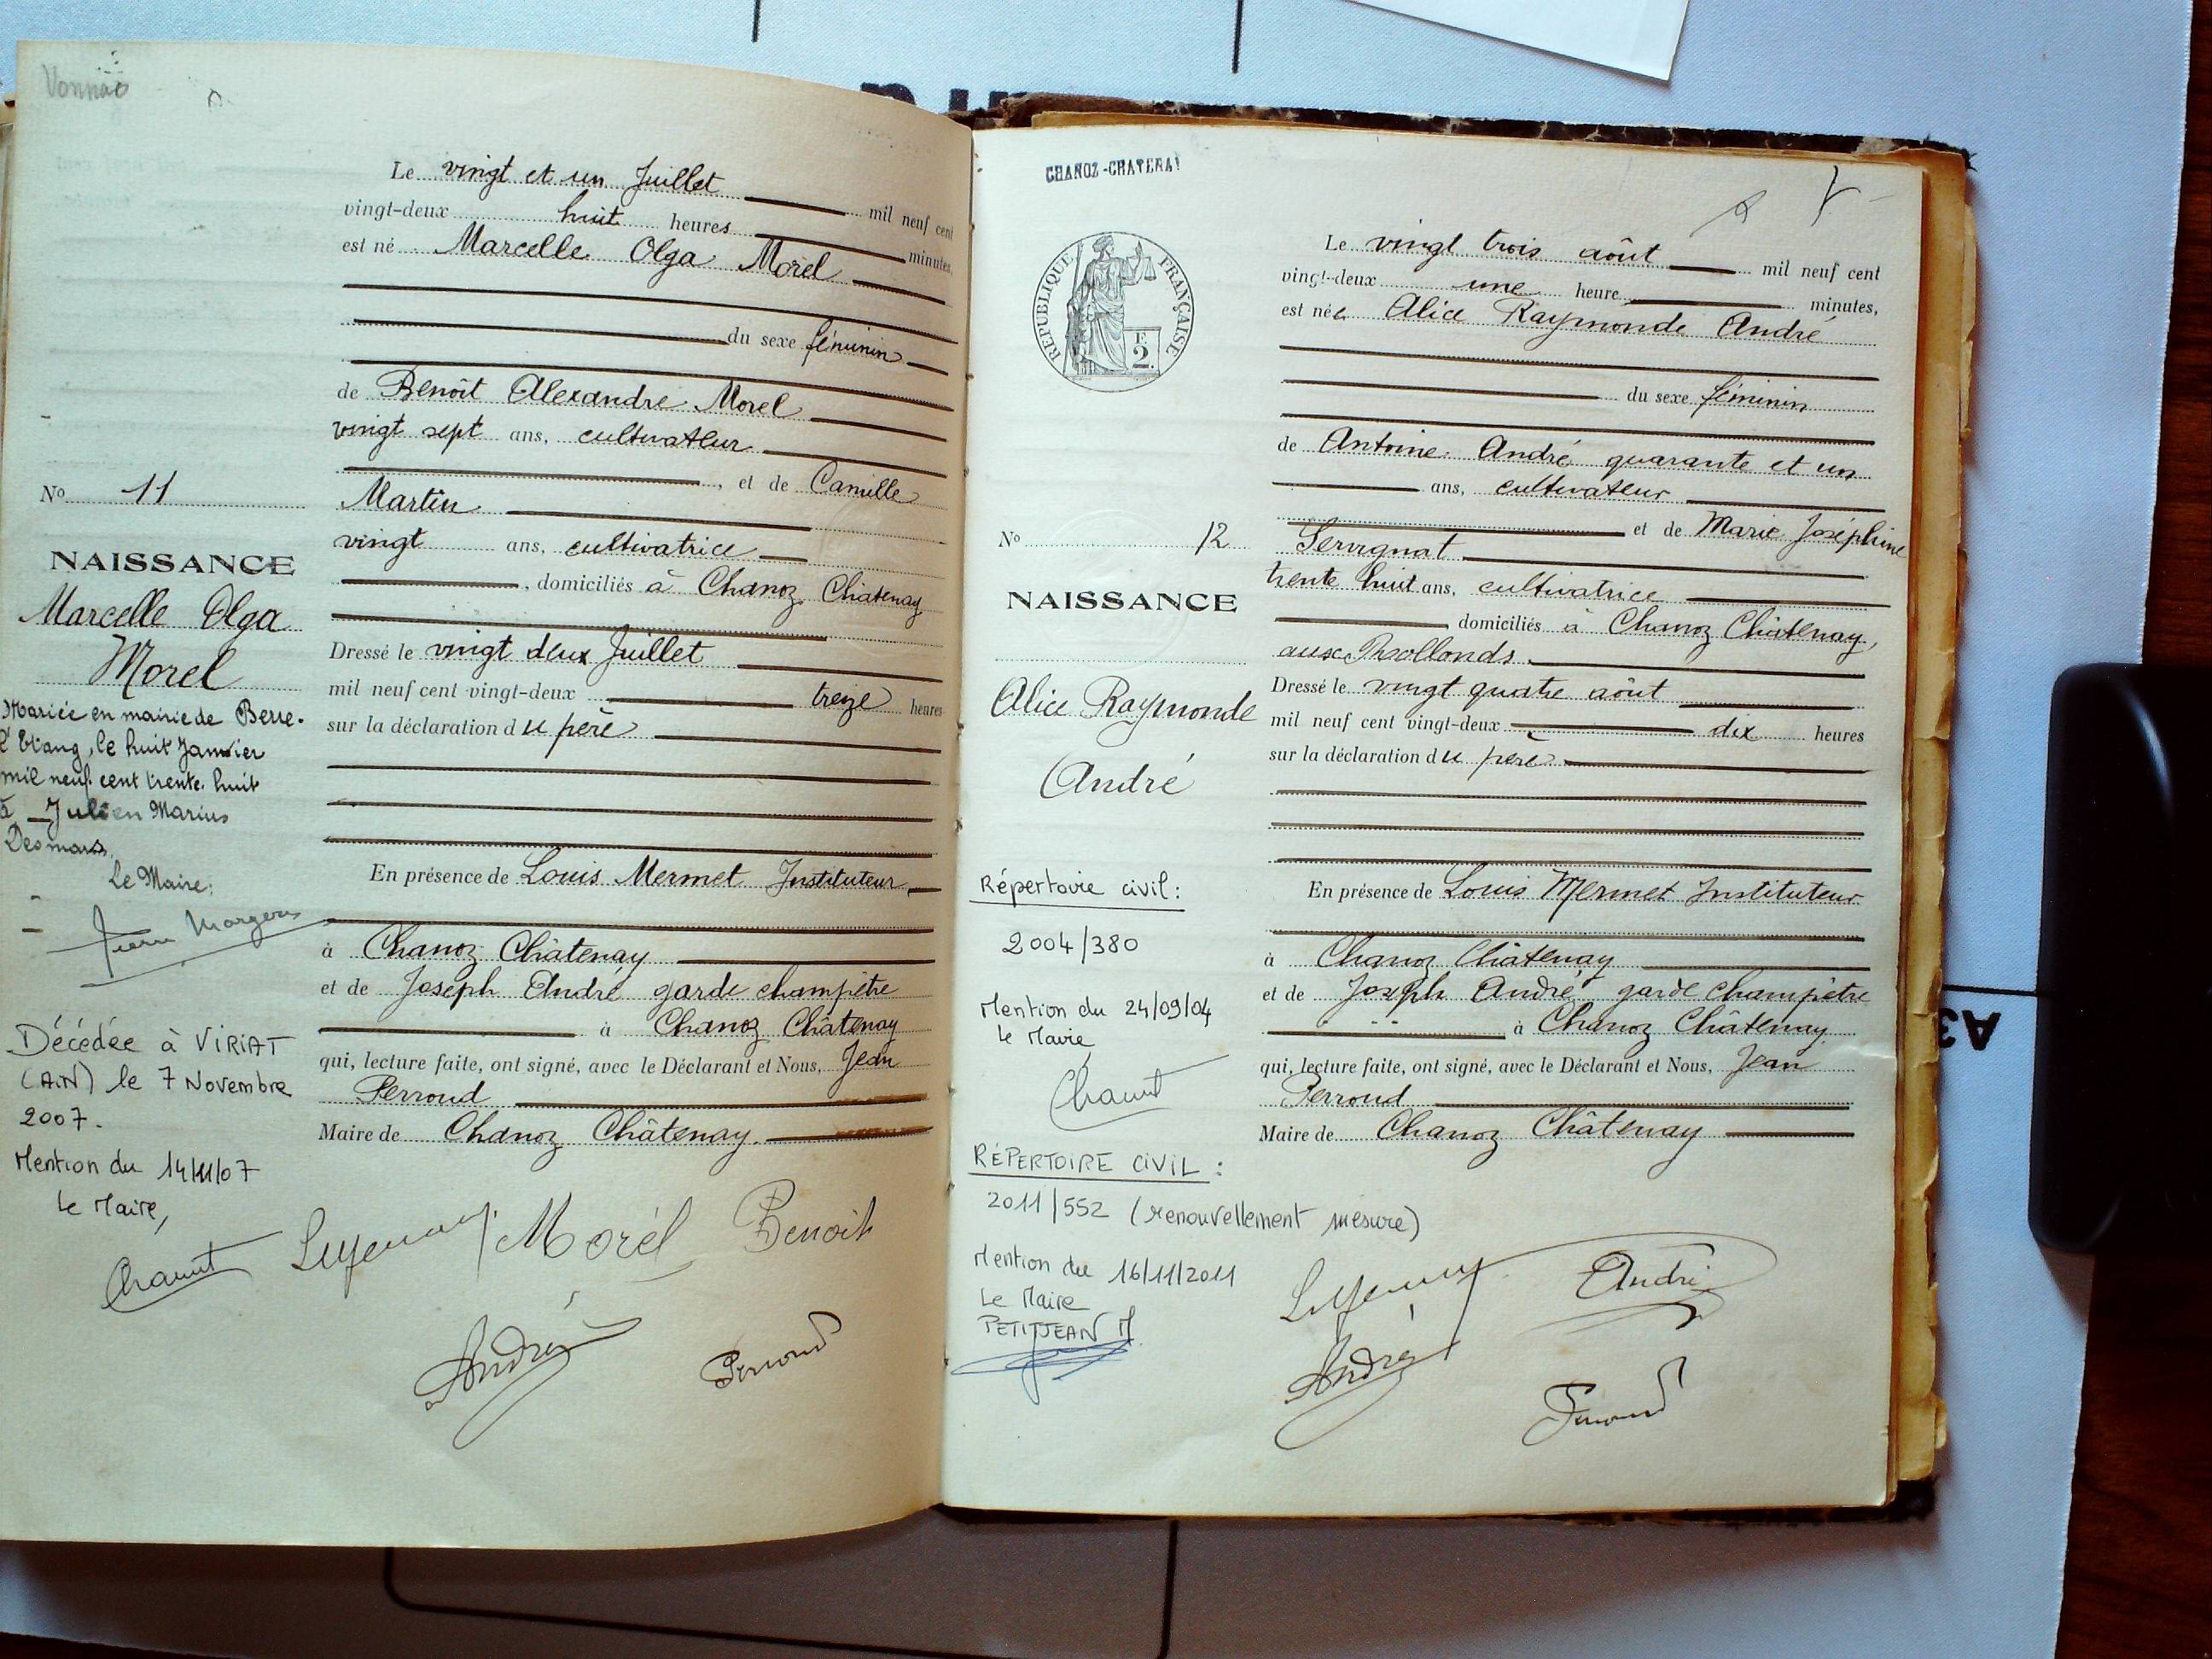 Vonnas
Le vingt et un Juillet mil neuf cent
vingt-deux huit heures minutes,
est né Marcelle Olga Morel
du sexe féminin
de Benoît Alexandre Morel
vingt sept ans, cultivateur
, et de Camille
Martin
vingt ans, cultivatrice
, domiciliés à Chanoz Châtenay
Dressé le vingt deux Juillet
mil neuf cent vingt-deux treize heures
sur la déclaration du père
En présence de Louis Mermet Instituteur
à Chanoz Châtenay
et de Joseph André garde champêtre
à Chanoz Châtenay
qui, lecture faite, ont signé, avec le Déclarant et Nous, Jean
Perroud
Maire de Chanoz Châtenay
Morel Benoit
André
Perroud
No 11
NAISSANCE
Marcelle Olga
Morel
Mariée en mairie de Berre-
l'Etang, le huit Janvier
mil neuf cent trente-huit
à Julien Marius
Desmaris
Le Maire:
Pierre
Décédée à VIRIAT
(AIN) le 7 Novembre
2007.
Mention du 14/11/07
Le Maire,
CHANOZ-CHATENAY
REPUBLIQUE FRANÇAISE
F
2
Le vingt trois août mil neuf cent
vingt-deux une heure minutes,
est née Alice Raymonde André
du sexe féminin
de Antoine André quarante et un
ans, cultivateur
et de Marie Joséphine
Servignat
trente huit ans, cultivatrice
domiciliés à Chanoz Châtenay,
aux Rollonds
Dressé le vingt quatre août
mil neuf cent vingt-deux dix heures
sur la déclaration du père
En présence de Louis Mermet Instituteur
à Chanoz Châtenay
et de Joseph André garde champêtre
à Chanoz Châtenay
qui, lecture faite, ont signé, avec le Déclarant et Nous, Jean
Perroud
Maire de Chanoz Châtenay
André
André
Perroud
No 12
NAISSANCE
Alice Raymonde
André
Répertoire civil:
2004/380
Mention du 24/09/04
Le Maire
RÉPERTOIRE CIVIL:
2011/552 (renouvellement mesure)
Mention du 16/11/2011
Le Maire
PETITJEAN M
A3